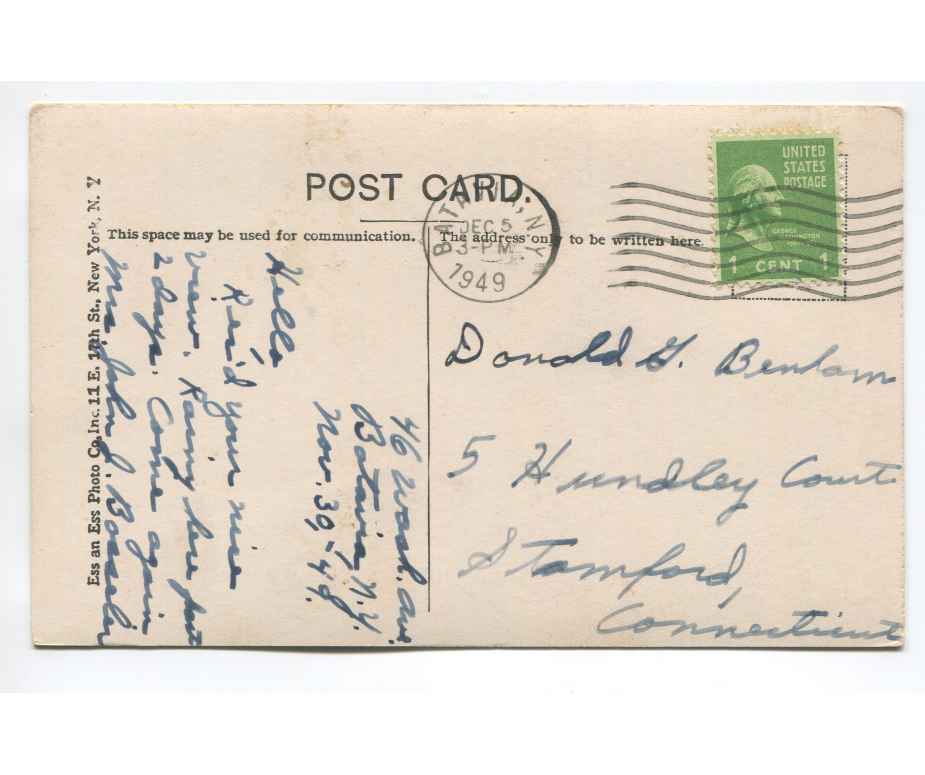 POST CARD.
This space may be used for communication.
The address only to be written here.
Ess an Ess Photo Co, Inc. 11 E. 17th St., New York, N. Y
BATAVIA, N.Y.
DEC 5
3-PM
1949
UNITED
STATES
POSTAGE
GEORGE
WASHINGTON
1 CENT 1
46 Wash. Ave
Batavia, N.Y.
Nov. 30, - 49.
Hello
Rec'd your nice
view. Rainy here past
2 days. Come again
Mrs John J.
Donald G. Benham
5 Hundley Court
Stamford,
Connecticut